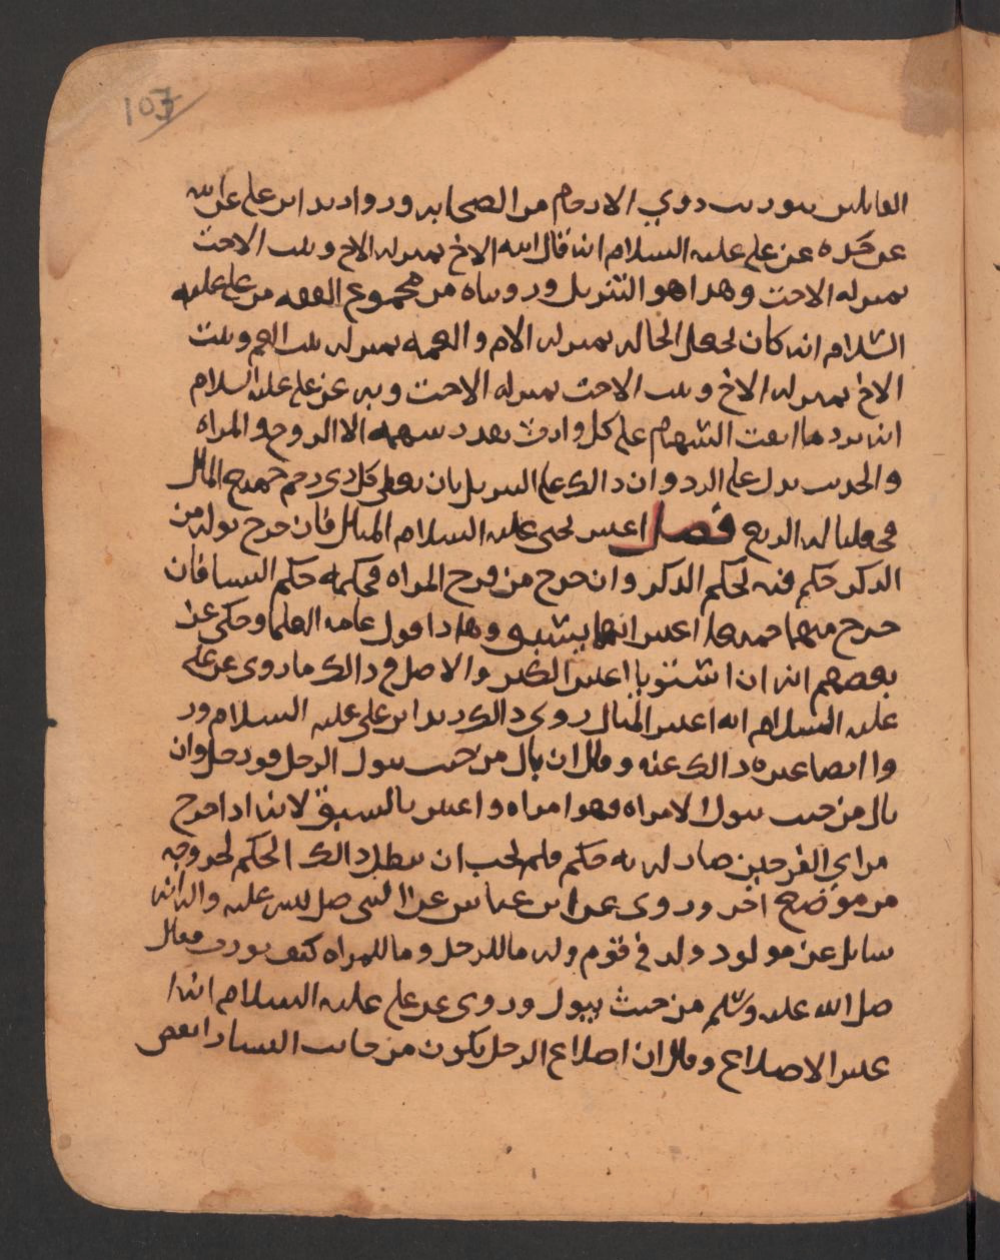 107
القائلين بتوريث ذوي الارحام من الصحابه وروا زيد ابن علي عن ابيه
عن جده عن علي عليه السلام انه قال ابنه الاخ بمنزله الاخ وبنت الاخت
بمنزله الاخت وهذا هو التنزيل ورويناه من مجموع الفقه عن علي عليه
السلام انه كان يجعل الخاله بمنزله الام والعمه بمنزله بنت العم وبنت
الاخ بمنزله الاخ وبنت الاخت بمنزله الاخت وبه عن علي عليه السلام
انه يرد ما ابقت السهام على كل وارث بقدر سهمه الا الزوج والمراه
والحديث يدل على الرد وان ذالك على التنزيل بان يعطى كل ذي رحم جميع المال
فجعلنا له الربع فصل اعتبر يحيى عليه السلام المبال فان خرج بوله من
الذكر حكم فيه بحكم الذكر وان خرج من فرج المراه فحكمه حكم النسا فان
خرج منهما جميعا اعتبر ايهما يسبق وهاذا قول عامه العلما وحكي عن
بعضهم انه ان استويا اعتبر الكثر والاصل في ذالك ما روي عن علي
عليه السلام انه اعتبر المبال روى ذالك زيد ابن علي عليه السلام ور
وا ايضا غيره ذالك عنه وقال ان بال من حيث يبول الرجل فهو رجل وان
بال من حيث يبول الامراه فهو امراه واعتبر بالسبق لانه اذا خرج
من اي الفرجين صار له به حكم فلم يجب ان يبطل ذالك الحكم لخروجه
من موضع اخر وروى عن ابن عباس عن النبي صلى الله عليه واله انه
سايل عن مولود ولد في قوم وله ما للرجل وما للمراه كيف يورث فقال
صلى الله عليه وسلم من حيث يبول وروى عن علي عليه السلام انه ا
عتبر الاضلاع وقال ان اضلاع الرجل يكون من جانب اليسار انقص